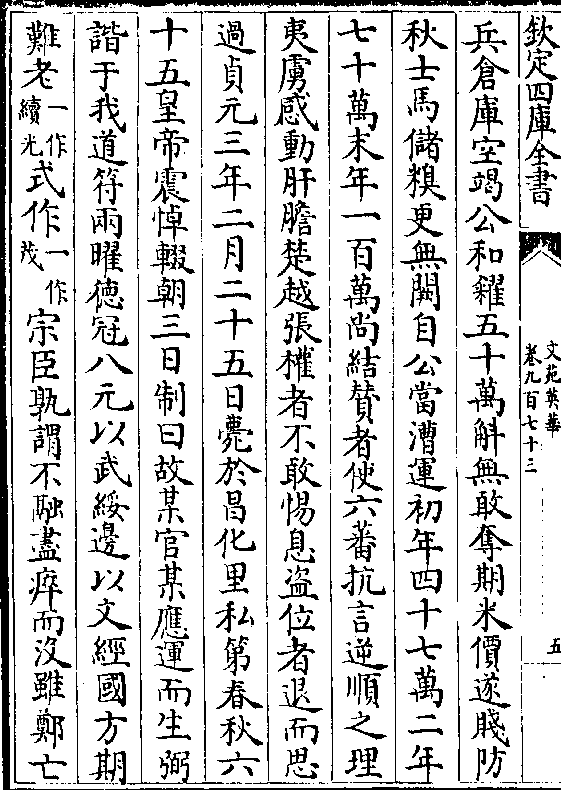 欽定四庫全書
文苑英華
卷九百七十三
五
兵倉庫空竭公和糴五十萬斛無敢奪期米價遂賤防
秋士馬儲糗更無闕自公當漕運初年四十七萬二年
七十萬末年一百萬尚結贊者使六蕃抗言逆順之理
夷虜感動肝膽楚越張權者不敢惕息盗位者退而思
過貞元三年二月二十五日薨於昌化里私第春秋六
十五皇帝震悼輟朝三日制曰故某官某應運而生弼
諧于我道符兩曜德冠八元以武綏邊以文經國方期
難老一作續光式作一作茂宗臣孰謂不融盡瘁而沒雖鄭亡